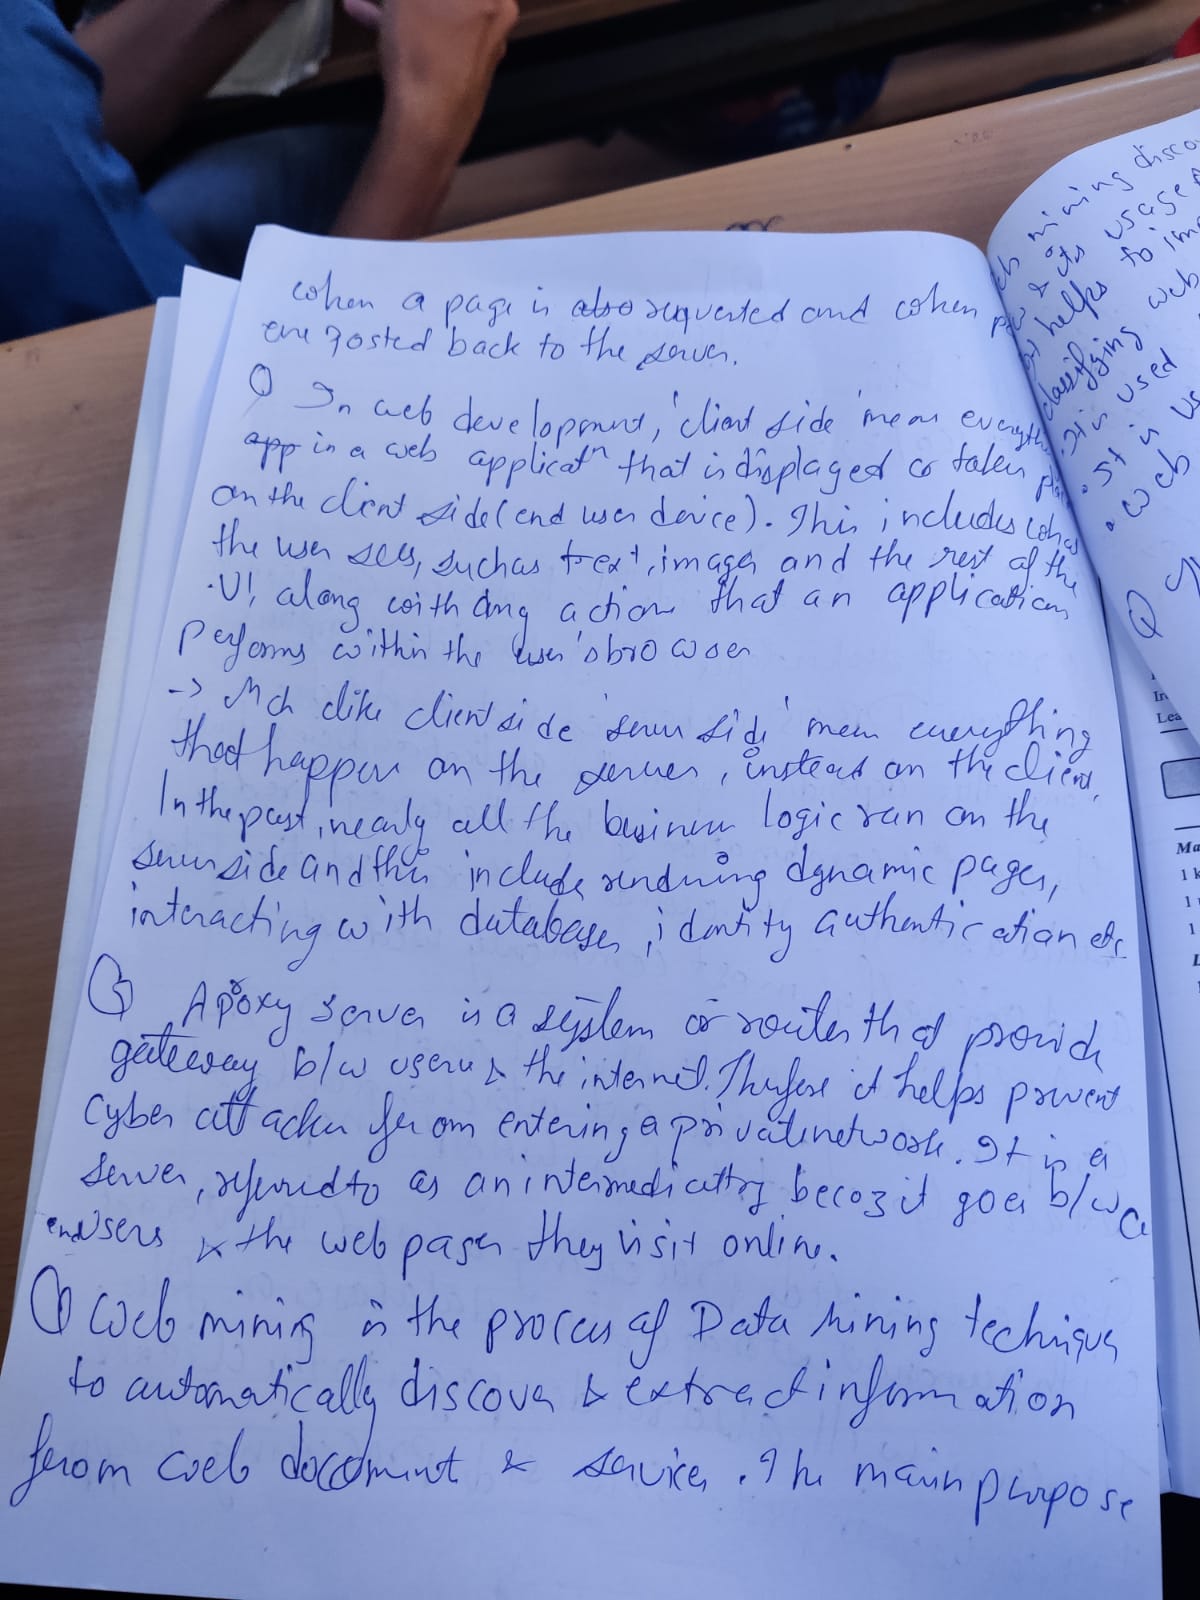 when a page is also requested and when
are posted back to the server.
Q In web development, 'client side' means everything
app in a web applicatn that is displayed or taken place
on the client side (end user device). This includes what
the user sees, such as text, images and the rest of the
UI, along with any action that an application
performs within the user's browser
-> Mch like client side 'server side' means everything
that happens on the server, instead on the client.
In the past, nearly all the business logic ran on the
server side and this include rendering dynamic pages,
interacting with databases, identity authentication etc
Q A proxy server is a system or router that provide
gateway b/w users & the internet. Therefore it helps prevent
cyber attacker from entering a private network. It is a
server, referred to as an intermediatry becoz it goes b/w
end users & the web pages they visit online.
Q Web mining is the process of Data Mining technique
to automatically discover & extract information
from web document & services. The main purpose
mining disco
& its usage
helps to im
classifying web
It is used
It is us
web
Q
Lea
Ma
1 k
1
1